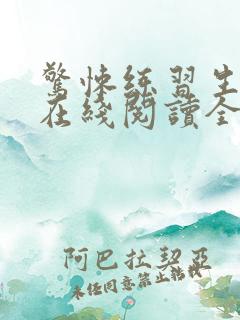 驚悚練習生
在綫閱讀全
阿巴拉契亞
未經同意禁止轉載